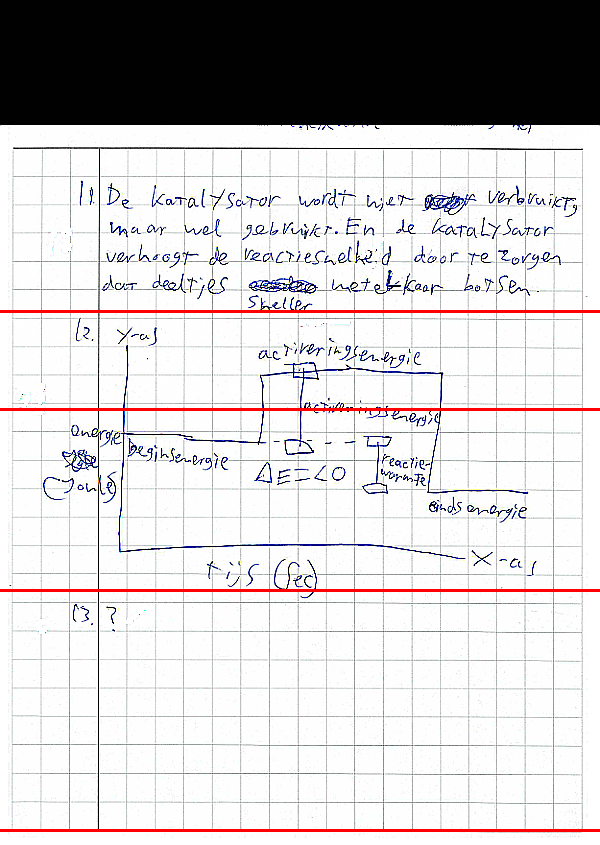 11. De katalysator wordt niet verbruikt,
maar wel gebruikt. En de katalysator
verhoogt de reactiesnelheid door te zorgen
dat deeltjes met elkaar botsen.
sneller
12. Y-as
activeringsenergie
activeringsenergie
energie
(Joule)
beginsenergie
ΔE=<0
reactie-
warmte
eindsenergie
X-as
tijs (sec)
13. ?